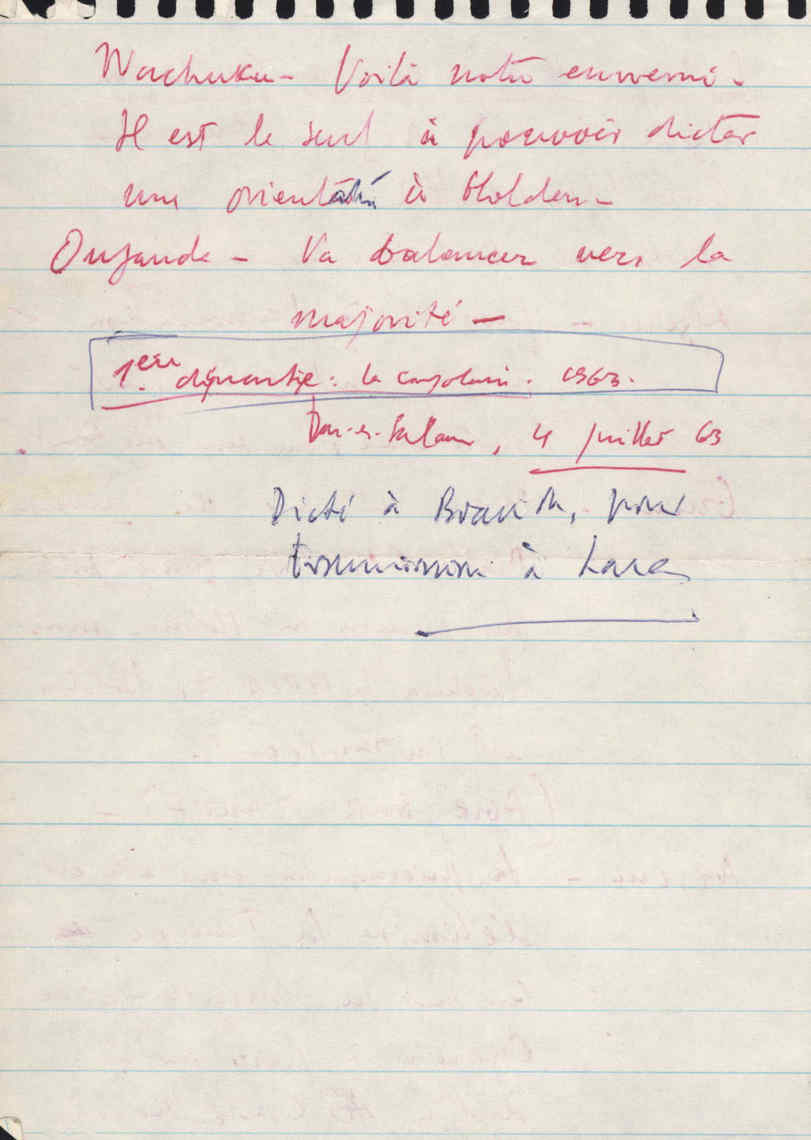 Wachuku - Voilà notre ennemi -
Il est le seul à pouvoir dicter
une orientation à Holden -
Ouganda - Va balancer vers la
majorité -
1ère : la congolaise . 1963.
Dar-es-Salam, 4 Juillet 63
Dicté à , pour
transmission à Lara